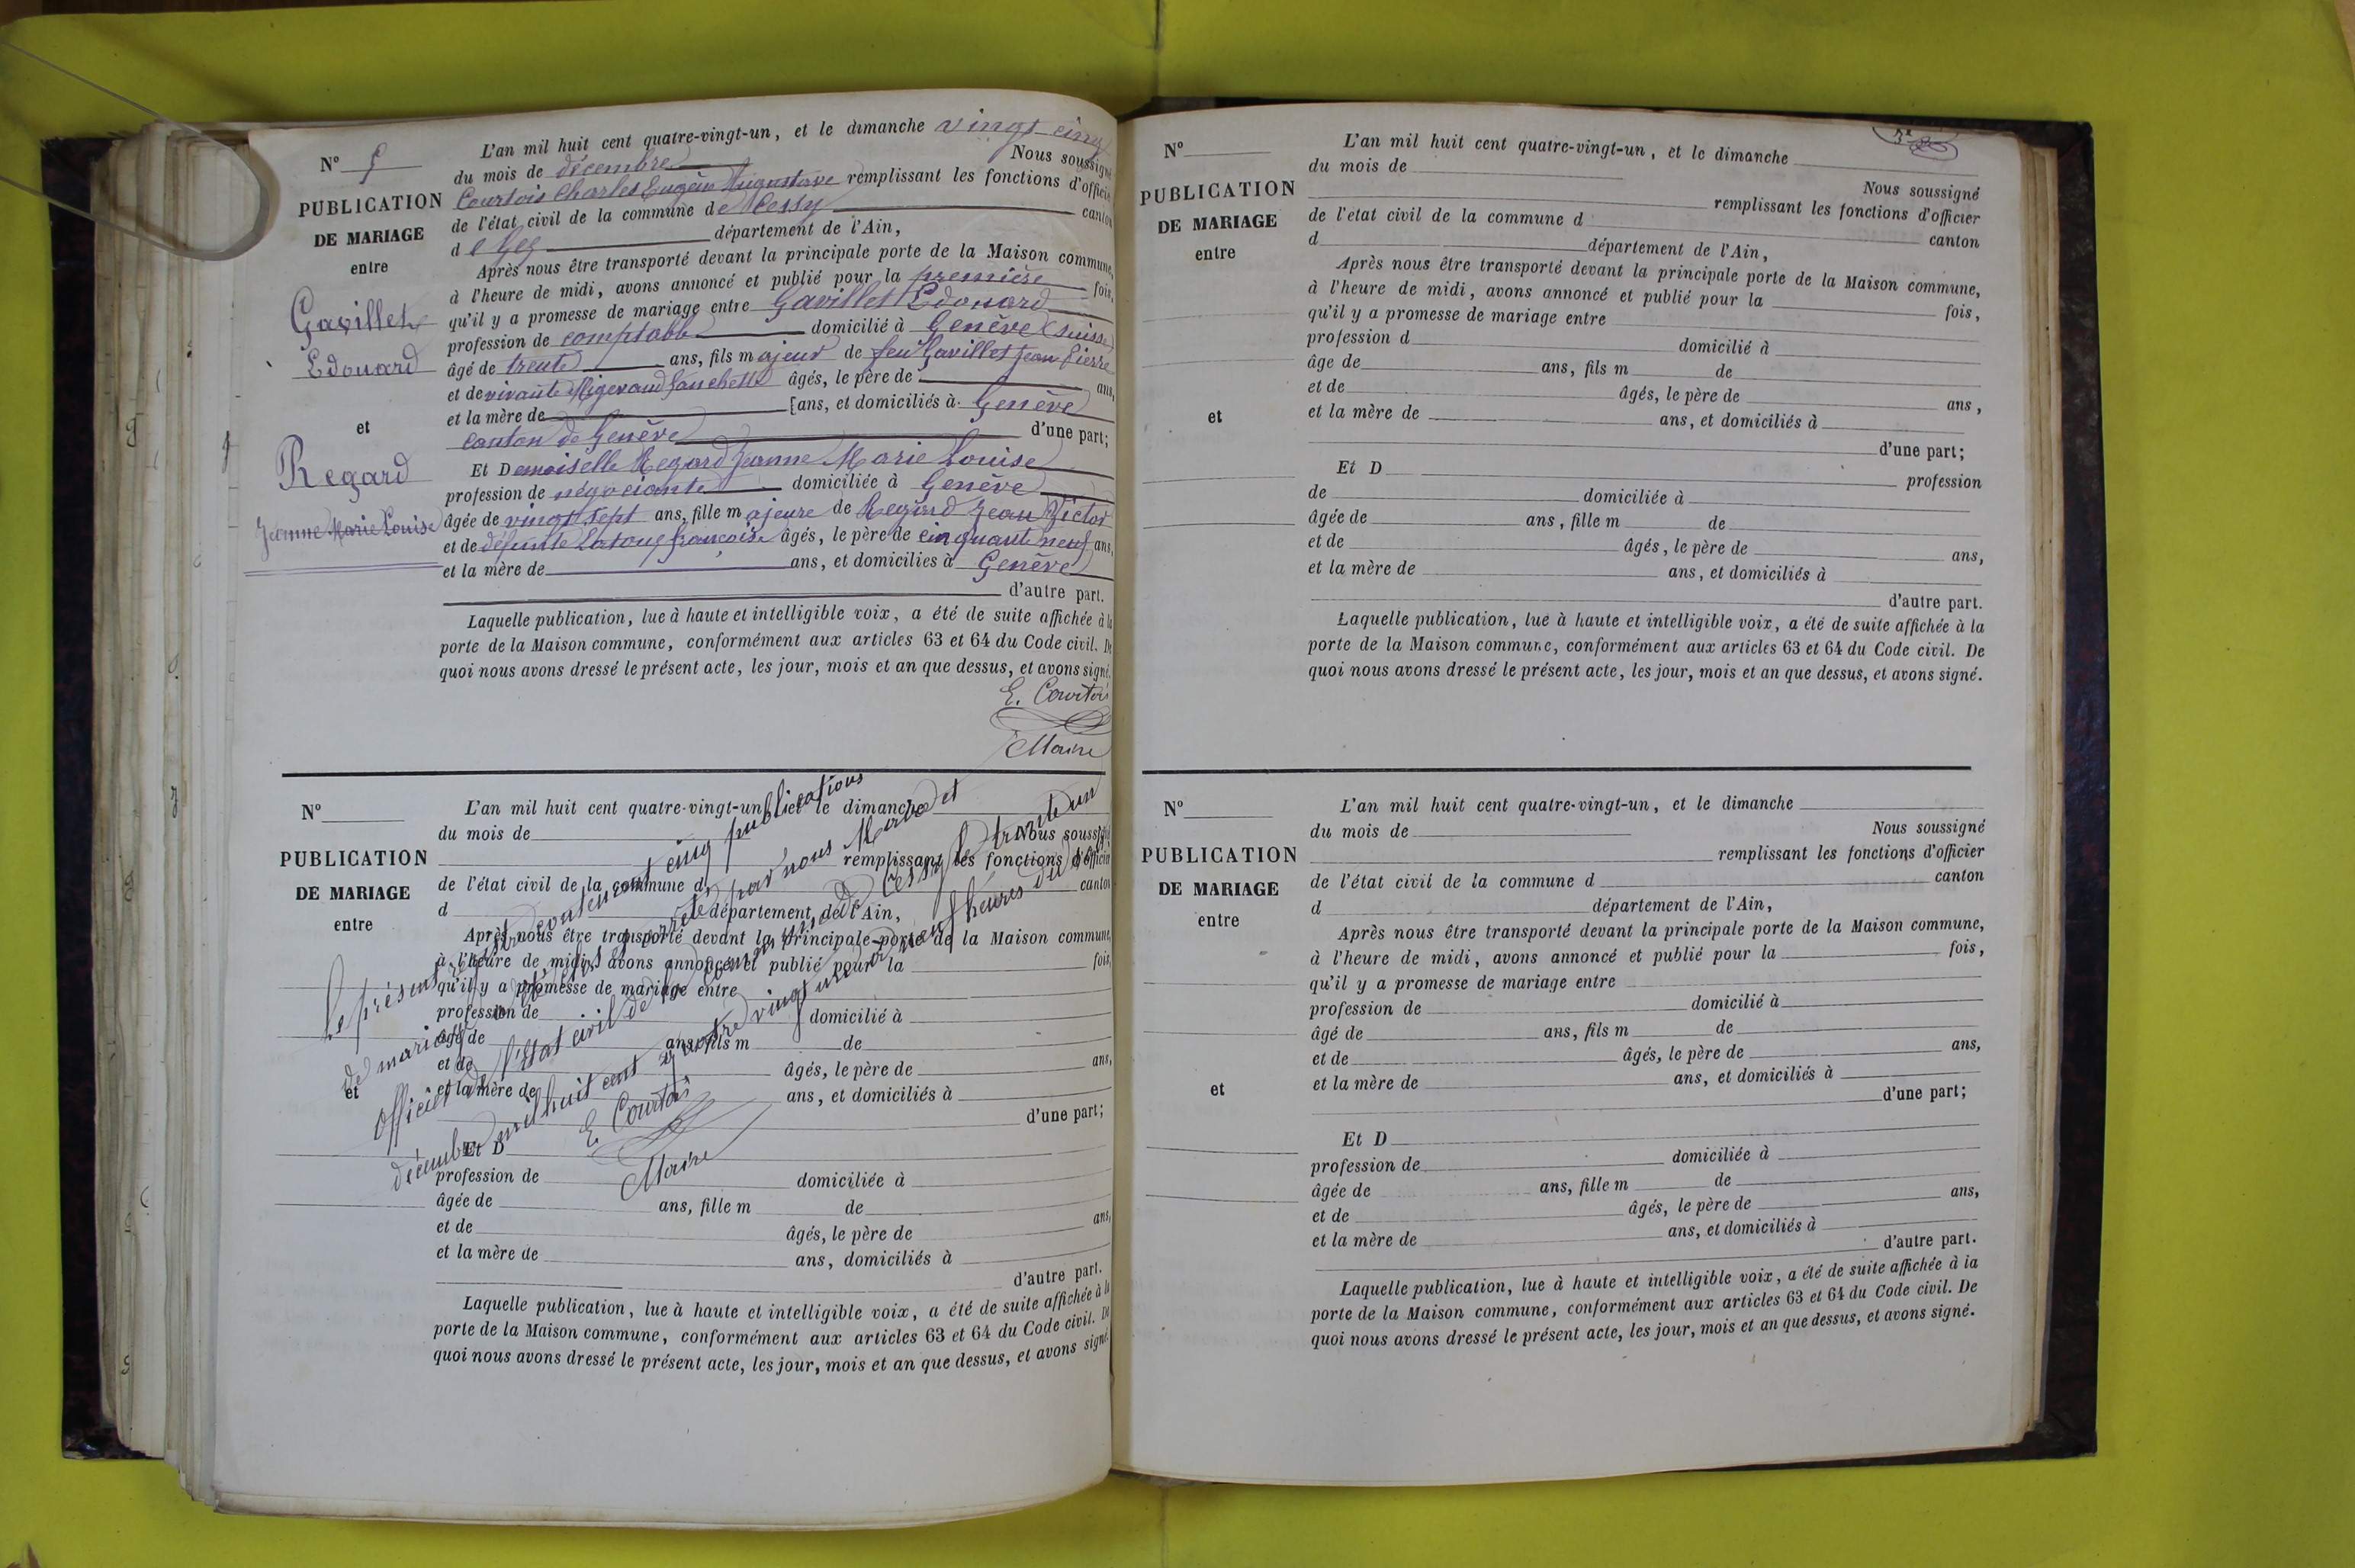 N° 5
PUBLICATION
DE MARIAGE
entre
Gavillet
Edouard
et
Regard
Jeanne Marie Louise
L'an mil huit cent quatre-vingt-un, et le dimanche vingt-cinq
du mois de décembre Nous soussigné
Courtois Charles Eugène Augustave remplissant les fonctions d'officier
de l'état civil de la commune de Cessy canton
de Gex département de l'Ain,
Après nous être transporté devant la principale porte de la Maison commune,
à l'heure de midi, avons annoncé et publié pour la première fois,
qu'il y a promesse de mariage entre Gavillet Edouard
profession de comptable domicilié à Genève (suisse)
âgé de trente ans, fils majeur de feu Gavillet Jean Pierre
et de vivante Fanchette âgés, le père de ans,
et la mère de ans, et domiciliés à Genève
canton de Genève d'une part;
Et Demoiselle Regard Jeanne Marie Louise
profession de négociante domiciliée à Genève
âgée de vingt sept ans, fille majeure de Regard Jean Victor
et de défunte françoise âgés, le père de cinquante neuf ans,
et la mère de ans, et domicilies à Genève
d'autre part.
Laquelle publication, lue à haute et intelligible voix, a été de suite affichée à la
porte de la Maison commune, conformément aux articles 63 et 64 du Code civil. De
quoi nous avons dressé le présent acte, les jour, mois et an que dessus, et avons signé.
E. Courtois
Maire
N°
PUBLICATION
DE MARIAGE
entre
et
L'an mil huit cent quatre-vingt-un, et le dimanche
du mois de Nous soussigné
remplissant les fonctions d'officier
de l'état civil de la commune d canton
d département de l'Ain,
Après nous être transporté devant la principale porte de la Maison commune,
à l'heure de midi, avons annoncé et publié pour la fois,
qu'il y a promesse de mariage entre
profession de domicilié à
âgé de ans, fils m de
et de âgés, le père de ans,
et la mère de ans, et domiciliés à
d'une part;
Et D
profession de domiciliée à
âgée de ans, fille m de
et de âgés, le père de ans,
et la mère de ans, domiciliés à
d'autre part.
Laquelle publication, lue à haute et intelligible voix, a été de suite affichée à la
porte de la Maison commune, conformément aux articles 63 et 64 du Code civil. De
quoi nous avons dressé le présent acte, les jour, mois et an que dessus, et avons signé.
Le présent contenant cinq publications
de mariage arrêté par nous Maire et
officier de l'état civil de la commune de Cessy le trente un
décembre mil huit cent quatre vingt un à heures du
E. Courtois
Maire
N°
PUBLICATION
DE MARIAGE
entre
et
L'an mil huit cent quatre-vingt-un, et le dimanche
du mois de
Nous soussigné
remplissant les fonctions d'officier
de l'etat civil de la commune d canton
d département de l'Ain,
Après nous être transporté devant la principale porte de la Maison commune,
à l'heure de midi, avons annoncé et publié pour la fois,
qu'il y a promesse de mariage entre
profession d domicilié à
âge de ans, fils m de
et de âgés, le père de ans,
et la mère de ans, et domiciliés à
d'une part;
Et D profession
de domiciliée à
âgée de ans, fille m de
et de âgés, le père de ans,
et la mère de ans, et domiciliés à
d'autre part.
Laquelle publication, lue à haute et intelligible voix, a été de suite affichée à la
porte de la Maison commune, conformément aux articles 63 et 64 du Code civil. De
quoi nous avons dressé le présent acte, les jour, mois et an que dessus, et avons signé.
N°
PUBLICATION
DE MARIAGE
entre
et
L'an mil huit cent quatre-vingt-un, et le dimanche
du mois de Nous soussigné
remplissant les fonctions d'officier
de l'état civil de la commune d canton
d département de l'Ain,
Après nous être transporté devant la principale porte de la Maison commune,
à l'heure de midi, avons annoncé et publié pour la fois,
qu'il y a promesse de mariage entre
profession de domicilié à
âgé de ans, fils m de
et de âgés, le père de ans,
et la mère de ans, et domiciliés à
d'une part;
Et D
profession de domiciliée à
âgée de ans, fille m de
et de âgés, le père de ans,
et la mère de ans, et domiciliés à
d'autre part.
Laquelle publication, lue à haute et intelligible voix, a été de suite affichée à la
porte de la Maison commune, conformément aux articles 63 et 64 du Code civil. De
quoi nous avons dressé le présent acte, les jour, mois et an que dessus, et avons signé.